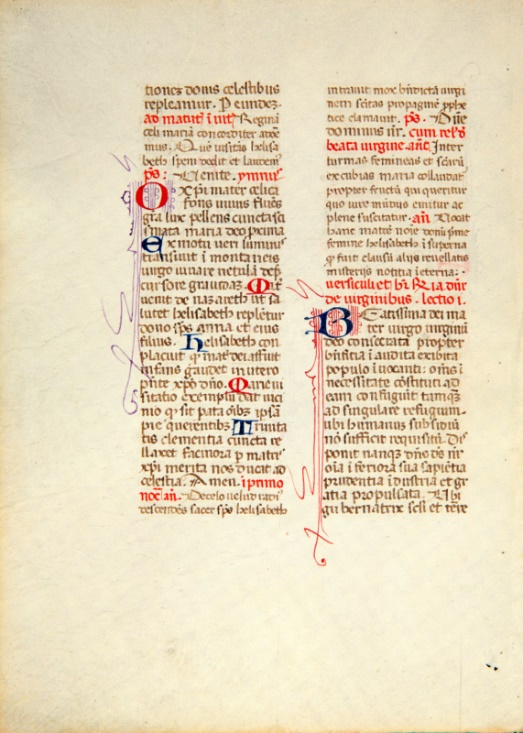 tiones donis celestibus
repleamur. P eundez.
ad matut̄ ī vit̄ Reginā
celi mariā concorditer
mus. Que visitās helisa
beth spem dedit et laudem
ps: Venite. ymnus
O xp̄i mater celica
fons vivus fluēs
gra lux pellens cuncta sci
smata maria deo prima
Ex motu veri luminis
transivit ī montaneis
virgo iuvare vetulā
cursore gravidaʒ. Mox
venit de nazareth ut sa
lutet helisabeth repletur
dono sp̄s anna et eius
filius. Helisabeth con
placuit q mat̄ dei affuit
infans gaudet in utero
pn̄te xp̄o dn̄o. Mane vi
sitatio exemplū dat
nio q sit pata oībʒ ipsā
pie querentibʒ Trinita
tis clementia cuncta re
laxet facinora p matr̄
xp̄i merita nos ducat ad
celestia. Amen. ī primo
noc̄. an̄. De celo velud radi
descendēs sacer sp̄s helisabeth
intravit mox bn̄dicta virgi
nem scitās propagine pphe
tice clamavit. ps. Dn̄e
dominus nr̄. cum relꝗs
beata virgine. anē Inter
turmas femineas et
excubias maria collaudat̄
propter fructū qui queritur
quo iure mūdus emitur ac
plene suscitatur. an̄ Vocat
hanc matrē novie domū pme
femine helisabeth ī superna
q fuit clausū alijs revellatis
misterijs notitia eterna:
versiculi et
de virginibus. lectio i.
Beatissima dei ma
ter virgo virginū
deo consecrata propter
bn̄fitia ī audita exibita
populo ī vocanti: oīns ī
necessitate cōstituti ad
eam confugiūt tamqʒ
ad singulare refugium.
ubi humanus subsidiū
nō sufficit requisitū. Dis
ponit nanque dn̄o
oīa ī feriora sua sapiētia
prudentia īdustria et gr̄
atia propulsata. Ubi
gubernatrix celi et terre